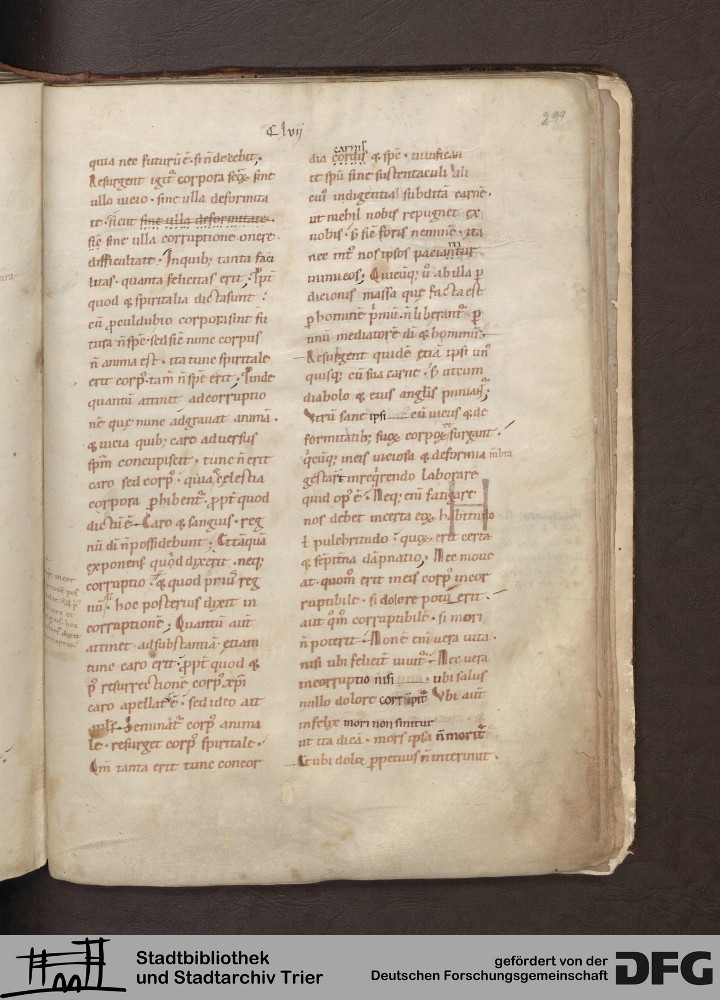 Clvii
299
quia nec futurū ē· si n̄ decebit;
Resurgent igit᷑ corpora scōꝝ sine
ullo uicio· sine ulla deformita
te· sicut sine ulla deformitate·
sic̄ sine ulla corruptione onere·
difficultate· Inquib; tanta faci
litas· quanta felicitas erit;
quod & spiritalia dicta sunt
cū p̄culdubio corpora sint fu
tura n̄ sp̄c· sed sic̄ nunc corpus
n̄ anima est· ita tunc spiritale
erit corp᷒· tam̄ n̄ sp̄c erit; Proinde
quantū attinet ad corruptio
nē que nunc adgravat animā·
& uicia quib; caro adversus
sp̄m concupiscit· tunc n̄ erit
caro sed corp᷒· quia & celestia
corpora phibent᷑· ꝓpt̄ quod
dictū ē· Caro & sanguis· reg
nū di n̄ possidebunt;
exponens quod dixerit· neq;
corruptio· & quod p̄riu᷒ reg
nū· hoc posterius dixit in
corruptionē; Quantū aūt
attinet ad substantiā· etiam
tunc caro erit· ꝓpt̄ quod &
p᷒ resurrectionē corp᷒ xp̄i
caro apellat᷑· sed ideo ait
apl̄s· Seminat᷑ corp᷒ anima
le· resurget corp᷒ spiritale·
Qm̄ tanta erit tunc concor
carnis
dia cordis & sp̄c· uiuifican
te sp̄u sine sustentaculi
eui᷒ indigentia subditā carnē·
ut nichil nobis repugnet ex
nobis· s; sic̄ foris neminē· ita
nec int᷒ nos ipsos paciamur
inimicos; Quicūq; ū ab illa p
dicionis massa que facta est
p hominē p̄mū· n̄ liberant᷑ p
unū mediatorē di & hominū·
Resurgent quidē etiā ipsi un᷒
quisq; cū sua carne· s; ut cum
diabolo & eius angl̄is puniant᷑;
Utrū sane ipsi cū uiciis & de
formitatib; suoꝝ corpoꝝ surgant·
q̄cūq; in eis uiciosa & deformia m̄bra
gestart inreq̄rendo laborare
quid op᷒ ē· Neq; enī fatigare
nos debet incerta eoꝝ habitudo
ł pulchritudo· quoꝝ erit certa
& sēpitna dāpnatio; Nec moue
at· quom̄ erit in eis corp᷒ incor
ruptibile· si dolore potū erit·
aut qm̄ corruptibile· si mori
n̄ poterit· Non ē enī vera vita·
nisi ubi felicit̄ uiuit᷑· Nec vera
incorruptio nisi ubi salus
nullo dolore corrūpit᷑ Ubi aūt
infelix mori non sinitur
ut ita dicā· mors ipsa n̄ morit᷑
Et ubi dolor ppetuus n̄ interimit·
Stadtbibliothek
und Stadtarchiv Trier
gefördert von der
Deutschen Forschungsgemeinschaft
DFG